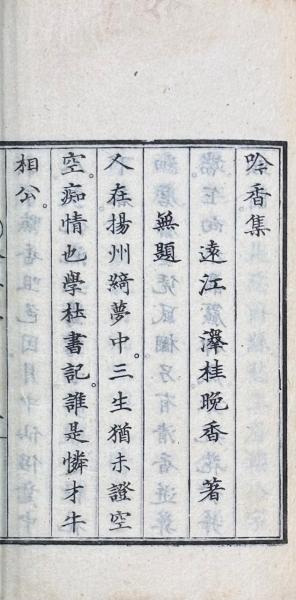 吟香集
遠江 澤桂晩香 著
無題
人在揚州綺夢中。三生猶未證空
空。痴情也學杜書記。誰是憐才牛
相公。